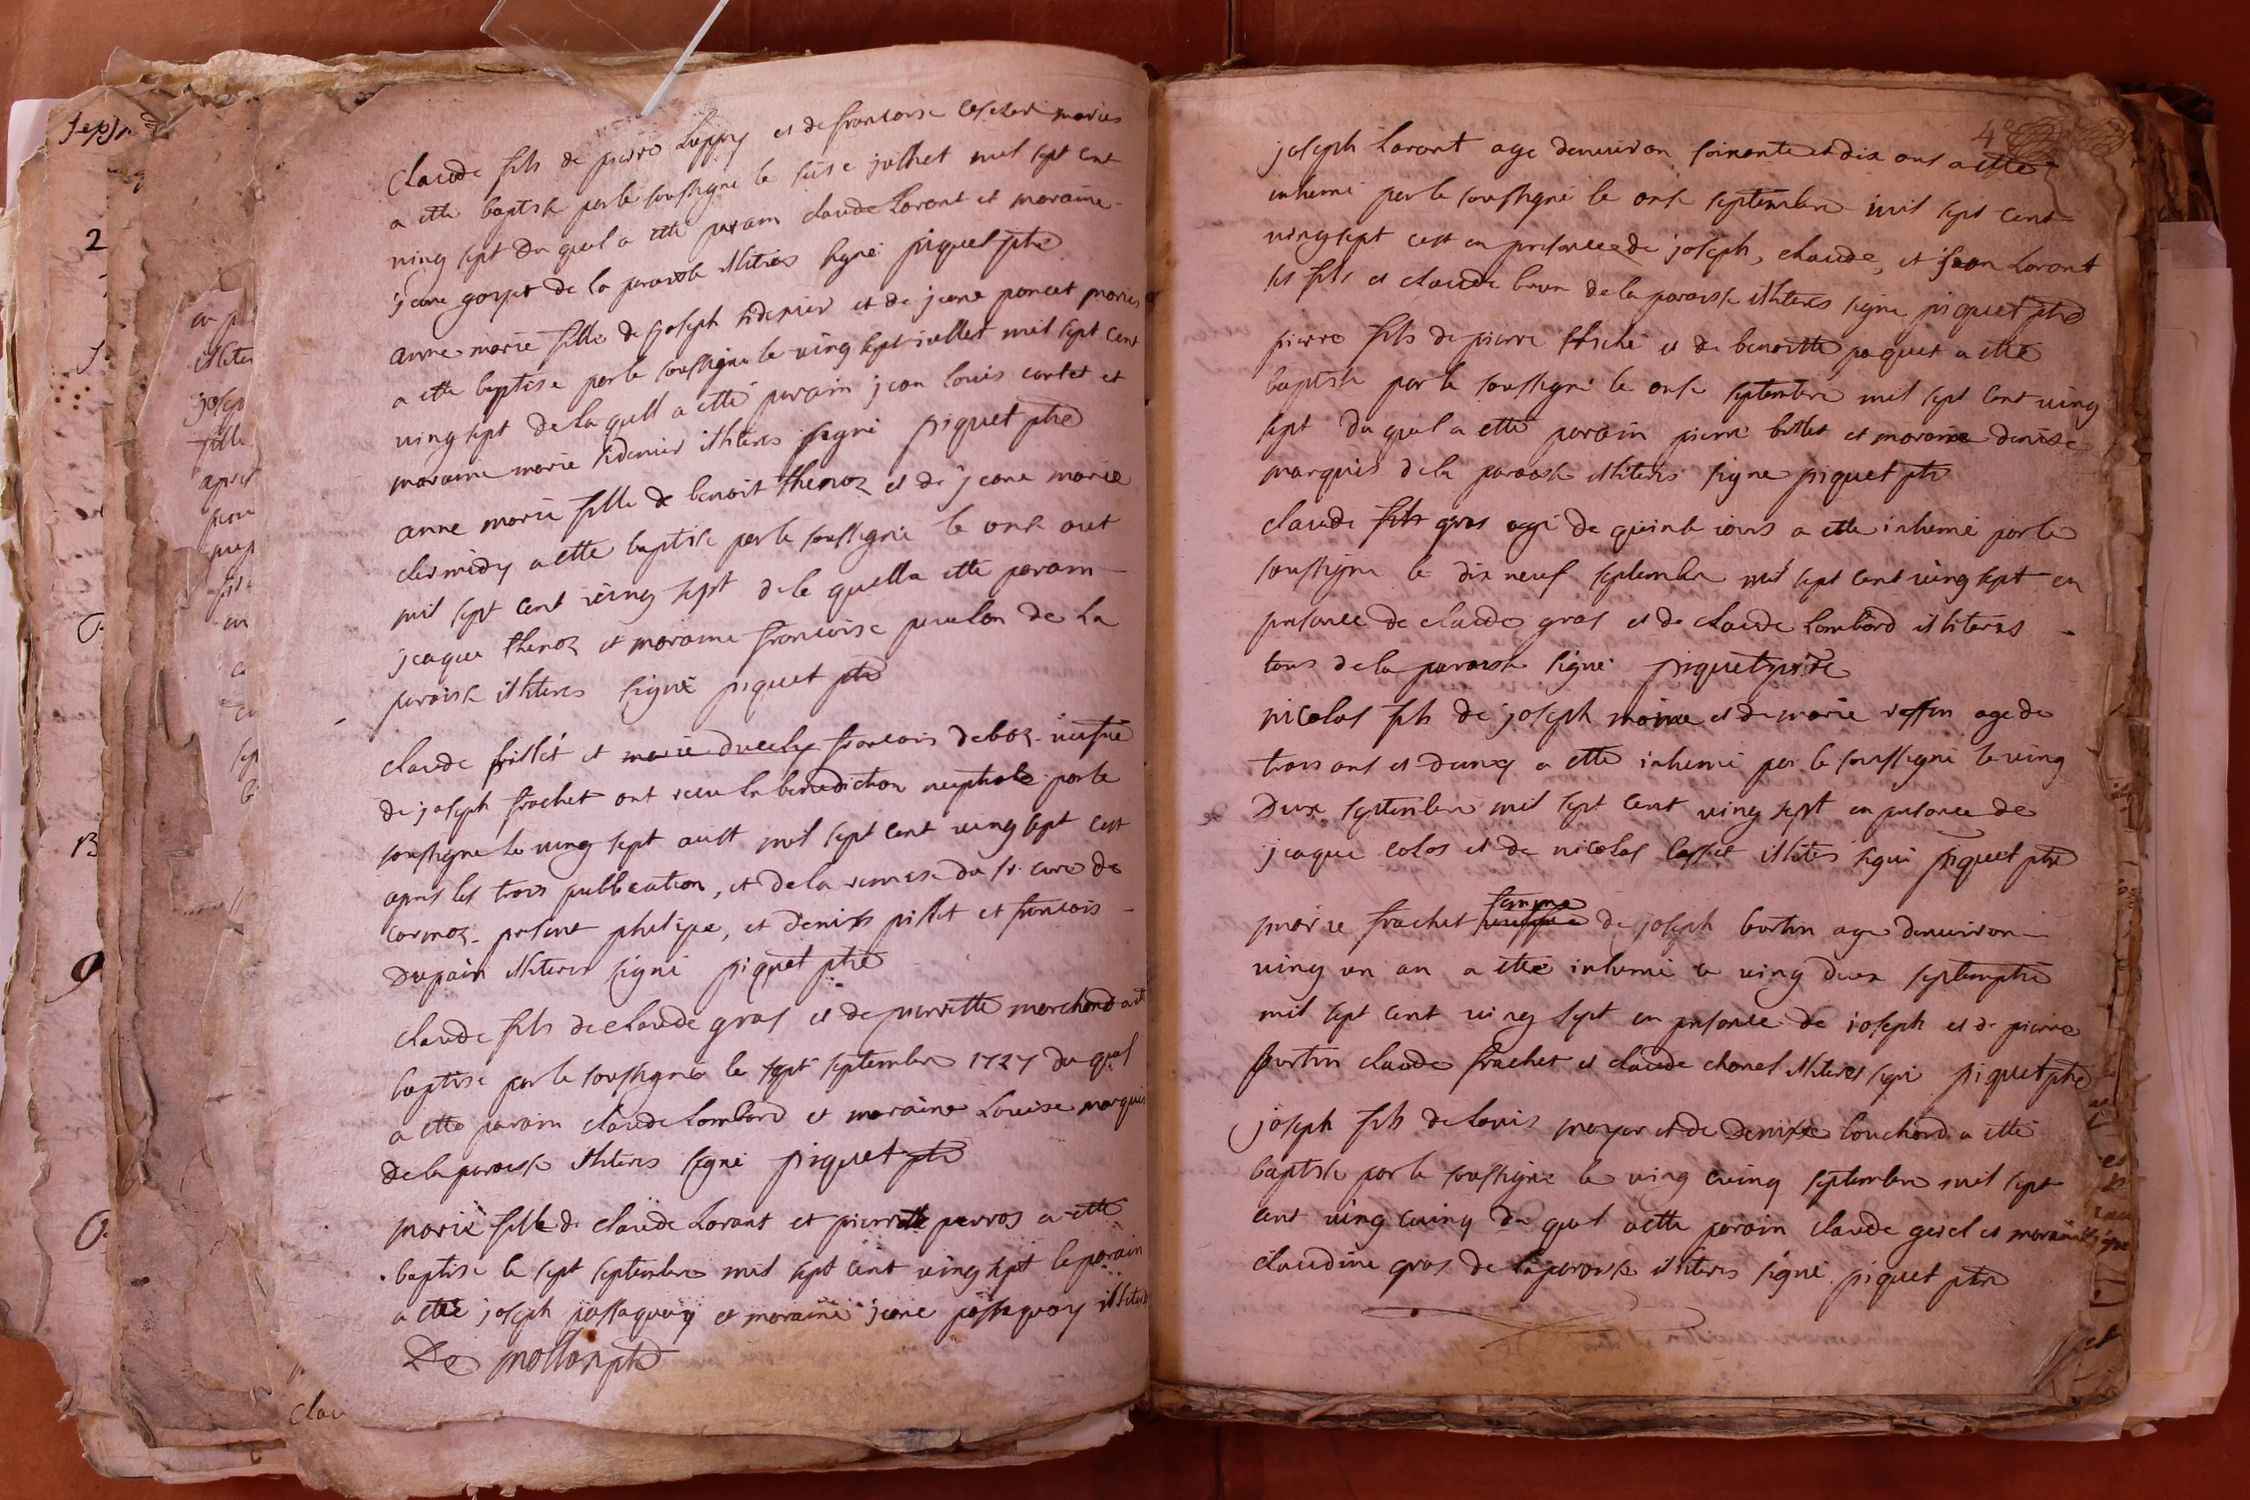 Claude fils de pierre et de francoise mariés
a etté baptisé par le soussigné le seise juillet mil sept cent
ving sept du quel a etté parain claude Lorant et maraine
jeane goyet de la paroisse illiterés signé piquet ptre
anne marie fille de joseph et de jeane poncet mariés
a etté baptisé par le soussigné le ving sept juillet mil sept cent
ving sept de la quell a etté parain jean louis cartet et
maraine marie illiterés signé piquet ptre
anne marie fille de benoit thenoz et de jeane marie
clermidy a etté baptisé par le soussigné le onse out
mil sept cent ving sept de la quella etté parain
jcaque thenoz et maraine francoise paulon de la
paroisse illiteres signé piquet ptre
claude pillet et francois deboz veufue
de joseph frachet ont receu la benediction nuptiale par le
soussigné le ving sept aust mil sept cent ving sept cest
apres les trois publication, et de la remise du sr. curé de
cormoz presant philipe, et denis pillet et francois
Dupain illiteres signé piquet ptre
claude fils de claude gras et de pierrette marchand a ett
baptisé par le soussigné le sept septembre 1727 du quel
a etté parain claude Lombard et maraine Louise marquis
de la paroisse illiteres signé piquet ptre
marie fille de claude Lorant et pierrette perros a etté
baptisé le sept septembre mil sept cent ving sept le parain
a etté joseph passaquay et maraine jeane passaquay illiteres
De mollan ptre
clau
4e
joseph Lorant age denuiron soixante et dix ans a etté
inhumé par le soussigné le onse septembre mil sept cent
ving sept cest en presence de joseph, claude, et jean Lorant
ses fils et claude brun de la paroisse illiteres signé piquet ptre
pierre fils de pierre et de benoitte paquet a etté
baptisé par le soussigné le onse septembre mil sept cent ving
sept du quel a etté parain pierre billet et maraine denise
marquis de la paroisse illiteres signe piquet ptre
claude fils gras agé de quinse iours a etté inhumé par le
soussigné le dix neuf septembre mil sept cent ving sept en
presance de claude gras et de claude Lombard illiteres
tous de la paroisse signé piquet ptre
nicolas fils de joseph moine et de marie reffin age de
trois ans et demy a etté inhumé par le soussigné le ving
Deux septembre mil sept cent ving sept en presance de
jcaque colas et de nicolas illiteres signé piquet ptre
femme
marie frachet veufue de joseph burtin age denuiron
ving un an a etté inhumé le ving deux septembre
mil sept cent ving sept en presance de joseph et de pierre
burtin claude frachet et claude chanel illiteres signé piquet ptre
joseph fils de louis moyer et de Denise bouchard a etté
baptisé par le soussigné le ving cuinq septembre mil sept
cent ving cuinq du quel a etté parain claude gerel et maraine
claudine gras de la paroisse illiteres signé piquet ptre